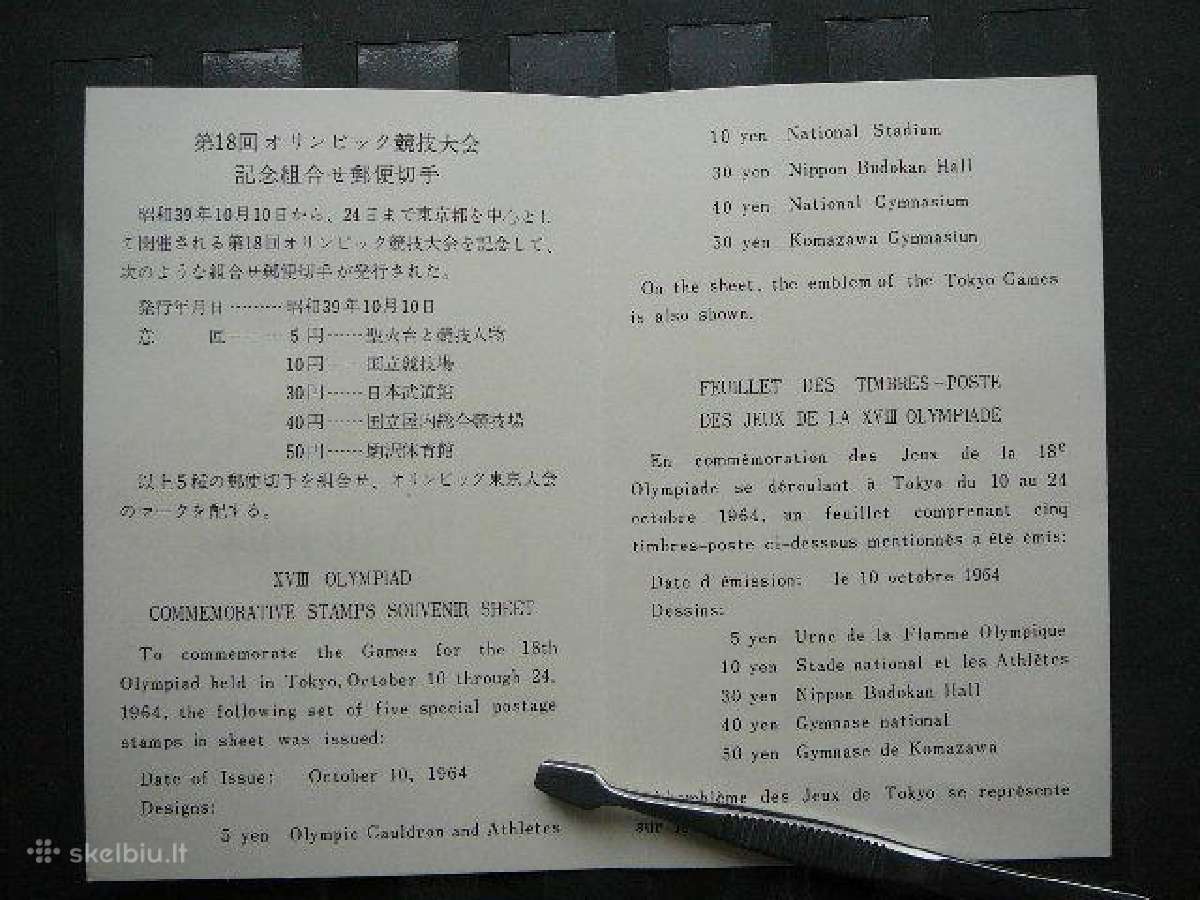 第18回オリンピック競技大会
記念組合せ郵便切手
昭和39年10月10日から、24日まで東京都を中心とし
て開催される第18回オリンピック競技大会を記念して、
次のような組合せ郵便切手が発行された。
発行年月日………昭和39年10月10日
意　　匠………5円……聖火台と競技人物
10円……国立競技場
30円……日本武道館
40円……国立屋内総合競技場
50円……駒沢体育館
以上5種の郵便切手を組合せ、オリンピック東京大会
のマークを配する。
XVIII OLYMPIAD
COMMEMORATIVE STAMPS SOUVENIR SHEET
To commemorate the Games for the 18th
Olympiad held in Tokyo, October 10 through 24,
1964, the following set of five special postage
stamps in sheet was issued:
Date of Issue: October 10, 1964
Designs:
5 yen Olympic Cauldron and Athletes
10 yen National Stadium
30 yen Nippon Budokan Hall
40 yen National Gymnasium
50 yen Komazawa Gymnasium
On the sheet, the emblem of the Tokyo Games
is also shown.
FEUILLET DES TIMBRES-POSTE
DES JEUX DE LA XVIII OLYMPIADE
En commémoration des Jeux de la 18e
Olympiade se déroulant à Tokyo du 10 au 24
octobre 1964, un feuillet comprenant cinq
timbres-poste ci-dessous mentionnés a été émis:
Date d'émission: le 10 octobre 1964
Dessins:
5 yen Urne de la Flamme Olympique
10 yen Stade national et les Athlètes
30 yen Nippon Budokan Hall
40 yen Gymnase national
50 yen Gymnase de Komazawa
emblème des Jeux de Tokyo se représente
sur
skelbiu.lt